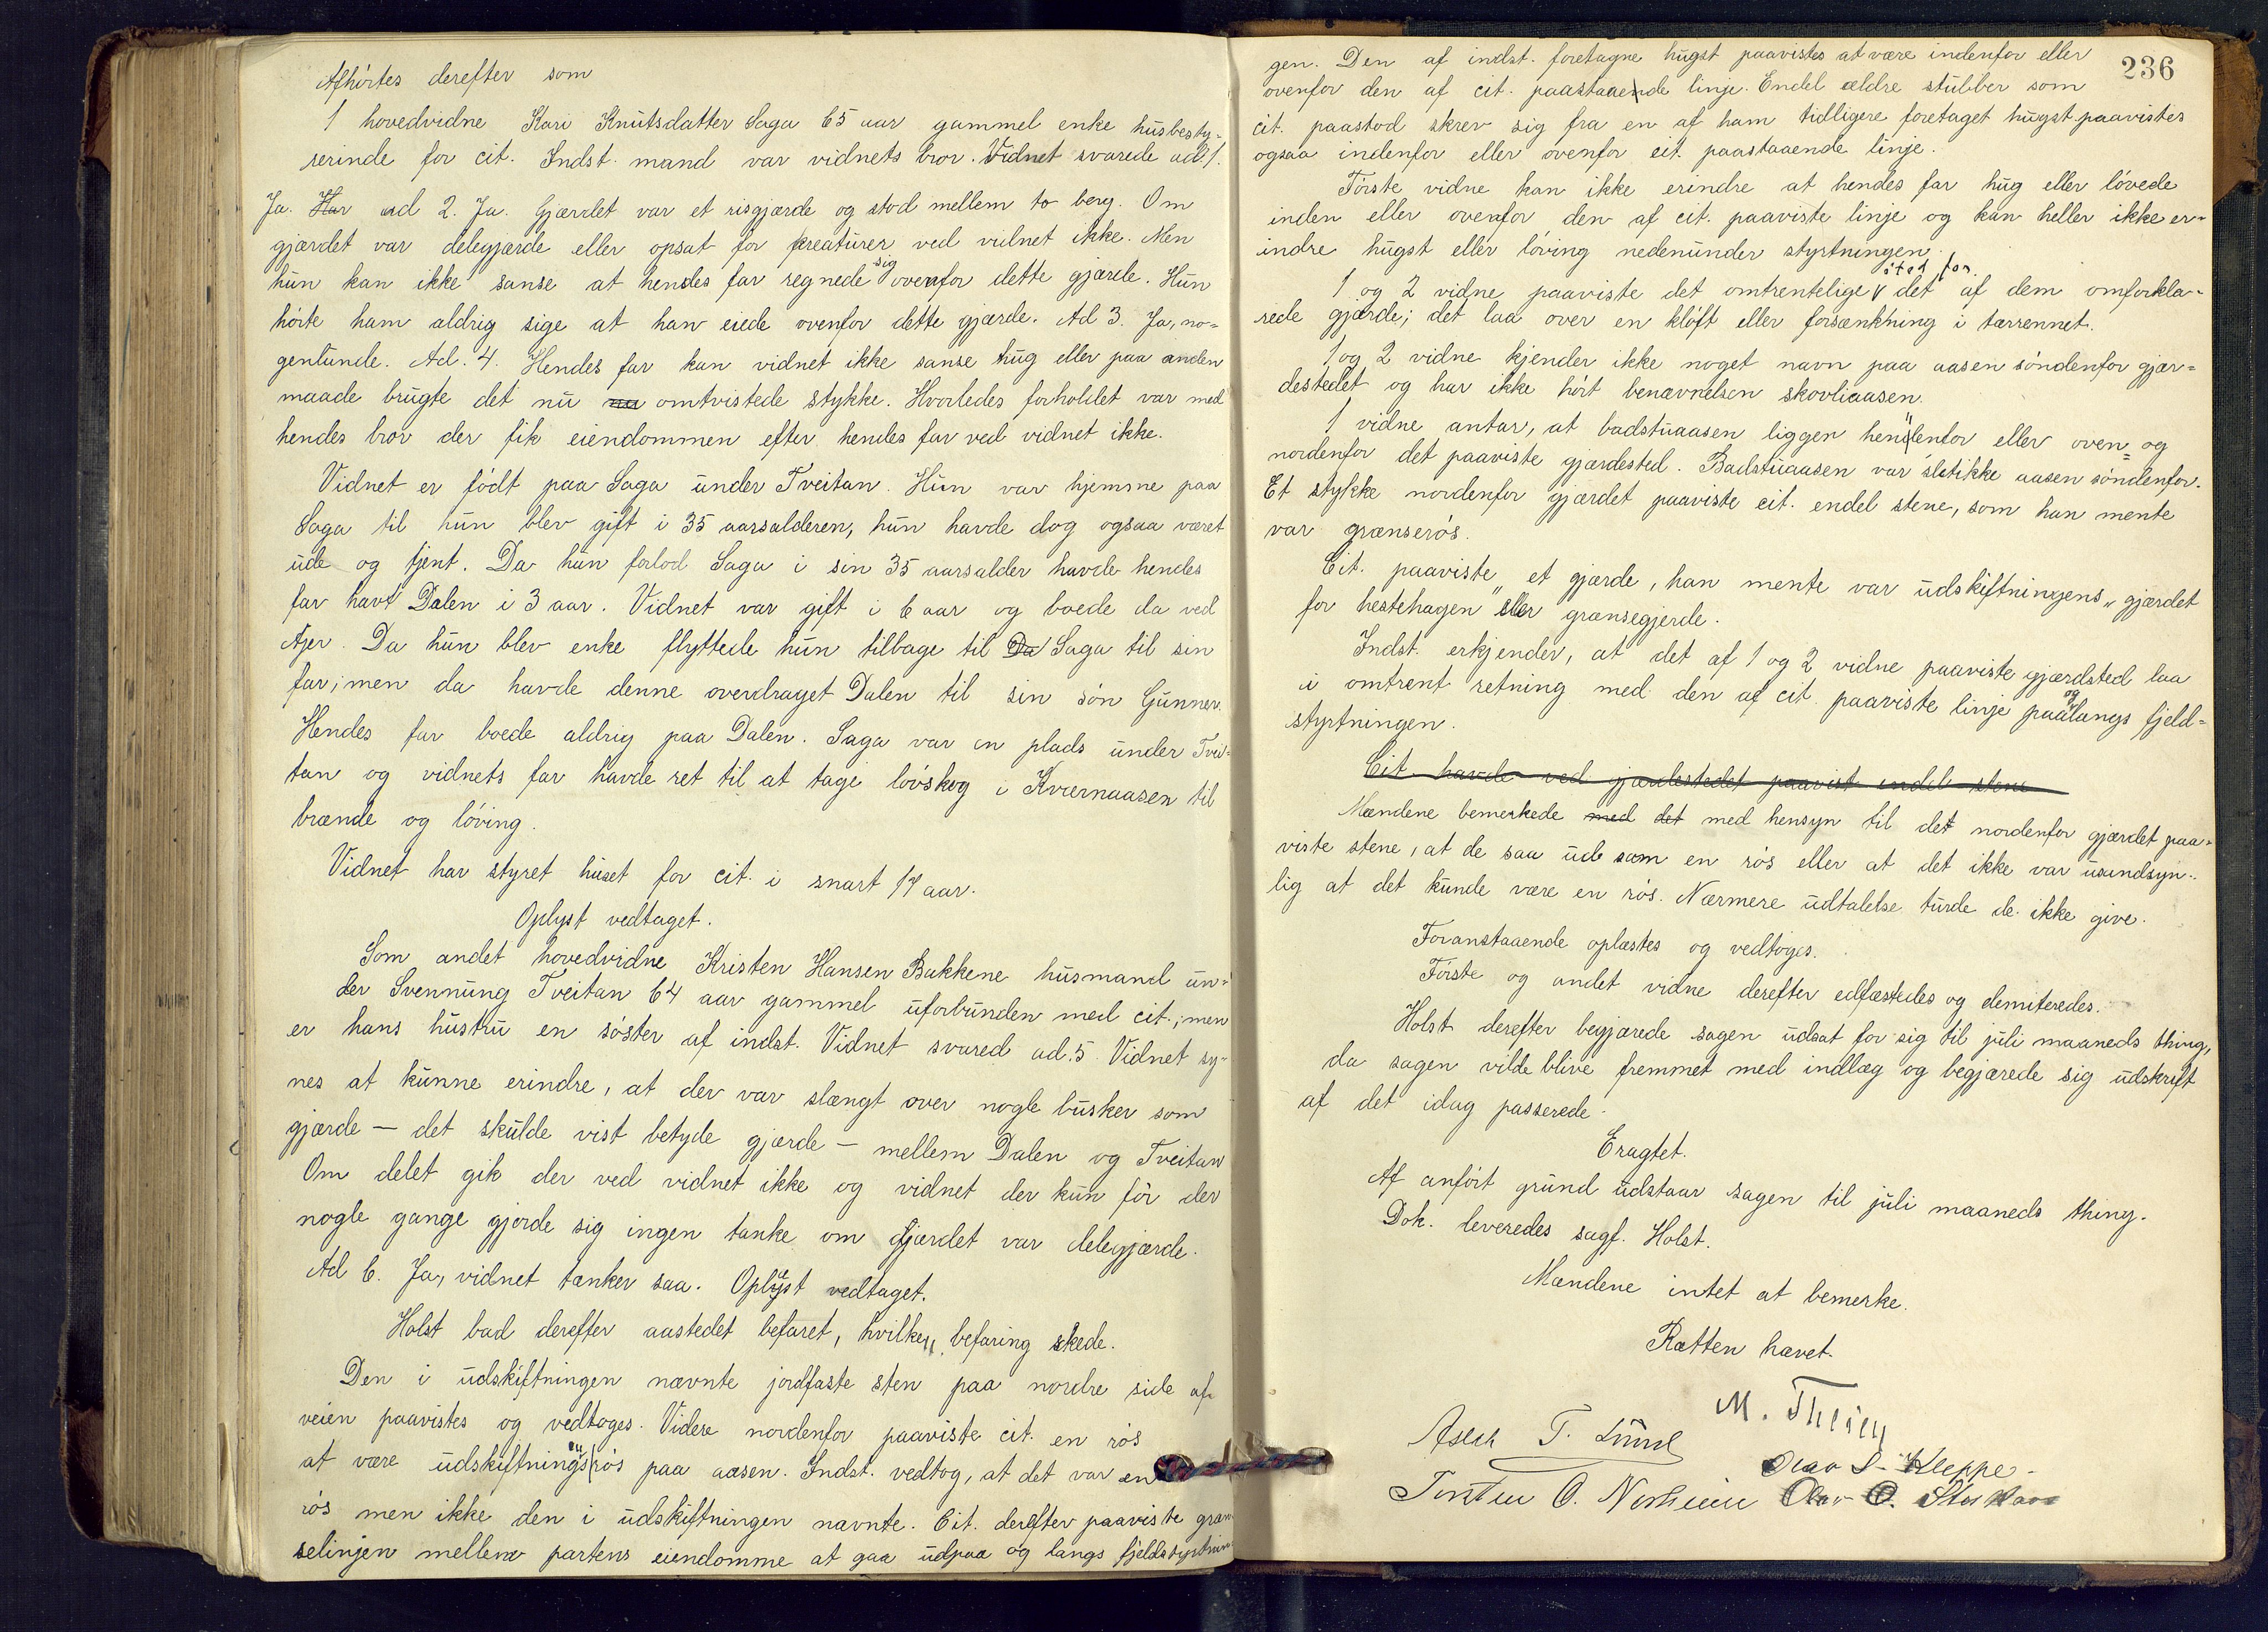 Afhørtes derefter som
1 hovedvidne Kari Knutsdatter Saga 65 aar gammel enke husbesty-
rerinde for cit. Indst. mand var vidnets bror. Vidnet svarede ad 1.
Ja. Har ad 2. Ja. Gjærdet var et risgjærde og stod mellem to berg. Om
gjærdet var delegjærde eller opsat for kreaturer ved vidnet ikke. Men
hun kan ikke sanse at hendes far regnede sig ovenfor dette gjærde. Hun
hørte ham aldrig sige at han eiede ovenfor dette gjærde. Ad 3. Ja, no-
genlunde. Ad. 4. Hendes far kan vidnet ikke sanse hug eller paa anden
maade brugte det nu omtvistede stykke. Hvorledes forholdet var med
hendes bror der fik eiendommen efter hendes far ved vidnet ikke.
Vidnet er født paa Saga under Tveitan. Hun var hjemme paa
Saga til hun blev gift i 35 aarsalderen, hun havde dog ogsaa været
ude og tjent. Da hun forlod Saga i sin 35 aarsalder havde hendes
far havt Dalen i 3 aar. Vidnet var gift i 6 aar og boede da ved
Ajer. Da hun blev enke flyttede hun tilbage til Da Saga til sin
far; men da havde denne overdraget Dalen til sin søn Gunner.
Hendes far boede aldrig paa Dalen. Saga var en plads under Tvei-
tan og vidnets far havde ret til at tage løvskog i Kvernaasen til
brænde og løving.
Vidnet har styret huset for cit. i snart 17 aar.
Oplyst vedtaget.
Som andet hovedvidne Kristen Hansen Bakkene husmand un-
der Svennung Tveitan 64 aar gammel uforbunden med cit.; men
er hans hustru en søster af indst. Vidnet svared ad. 5. Vidnet sy-
nes at kunne erindre, at der var slængt over nogle busker som
gjærde — det skulde vist betyde gjærde — mellem Dalen og Tveitan
Om delet gik der ved vidnet ikke og vidnet der kun før der
nogle gange gjorde sig ingen tanke om gjærdet var delegjærde.
Ad 6. Ja, vidnet tænker saa. Oplæst vedtaget.
Holst bad derefter aastedet befaret, hvilken befaring skede.
Den i udskiftningen nævnte jordfaste sten paa nordre side af
veien paavistes og vedtoges. Videre nordenfor paaviste cit. en røs
at være udskiftningens røs paa aasen. Indst. vedtog, at det var en
røs men ikke den i udskiftningen nævnte. Cit. derefter paaviste græn-
selinjen mellem partens eiendomme at gaa udpaa og langs fjeldstyrtnin-
236
gen. Den af indst. foretagne hugst paavistes at være indenfor eller
ovenfor den af cit. paastaaende linje. Endel ældre stubber som
cit. paastod skrev sig fra en af ham tidligere foretaget hugst paavistes
ogsaa indenfor eller ovenfor cit. paastaaende linje.
Første vidne kan ikke erindre at hendes far hug eller løvede
inden eller ovenfor den af cit. paaviste linje og kan heller ikke er-
indre hugst eller løving nedenunder styrtningen.
1 og 2 vidne paaviste det omtrentelige sted for det af dem omforkla-
rede gjærde; det laa over en kløft eller forsænkning i tærrennet.
1 og 2 vidne kjender ikke noget navn paa aasen søndenfor gjær-
destedet og har ikke hørt benævnelsen skovliaasen.
1 vidne antar, at badstuaasen liggen hen"denfor eller oven- og
nordenfor det paaviste gjærdested. Badstuaasen var sletikke aasen søndenfor.
Et stykke nordenfor gjærdet paaviste cit. endel stene, som han mente
var grænserøs.
Cit. paaviste et gjærde, han mente var udskiftningens „gjærdet
for hestehagen" eller grænsegjerde.
Indst. erkjender, at det af 1 og 2 vidne paaviste gjærdsted laa
i omtrent retning med den af cit. paaviste linje paa og langs fjeld-
styrtningen.
Cit. havde ved gjærdestedet paavist endel stene
Mændene bemerkede med det med hensyn til det nordenfor gjærdet paa-
viste stene, at de saa ud som en røs eller at det ikke var usandsyn-
lig at det kunde være en røs. Nærmere udtalelse turde de ikke give.
Foranstaaende oplæstes og vedtoges.
Første og andet vidne derefter edfæstedes og demiteredes.
Holst derefter begjærede sagen udsat for sig til juli maaneds thing,
da sagen vilde blive fremmet med indlæg og begjærede sig udskrift
af det idag passerede.
Eragtet.
Af anført grund udstaar sagen til juli maaneds thing.
Dok. leveredes sagf. Holst.
Mændene intet at bemerke.
Retten hævet.
M. Theisen
Aslak T. Lunde
Olav S. Kleppe
Torsten O. Norheim Olav O.